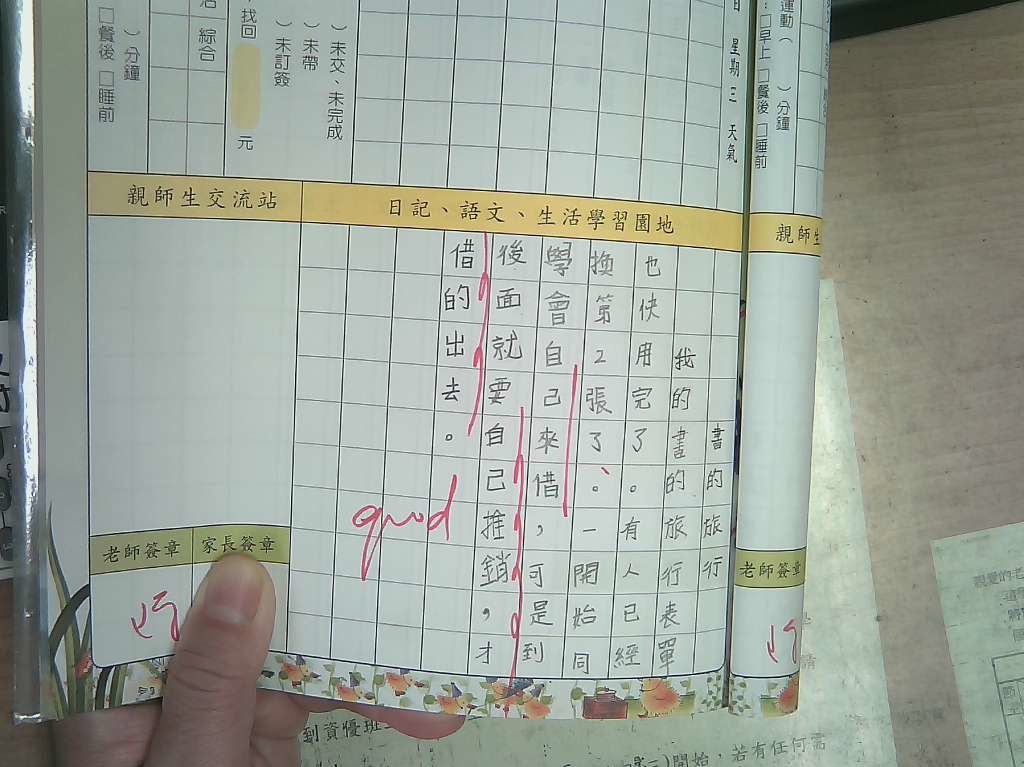 運動(
：□早上 □餐後 □睡前
)分鐘
日 星期三 天氣
)未交、未完成
)未帶
)未訂簽
找回
元
綜合
)分鐘
□餐後 □睡前
日記、語文、生活學習園地
親師生交流站
親師生
書的旅行
我的書的旅行表單
也快用完了。有人已經
換第2張了。一開始同
學會自己來借，可是到
後面就要自己推銷，才
借的出去。
good
老師簽章
家長簽章
老師簽章
到資優班
開始，若有任何需
親愛的老
請